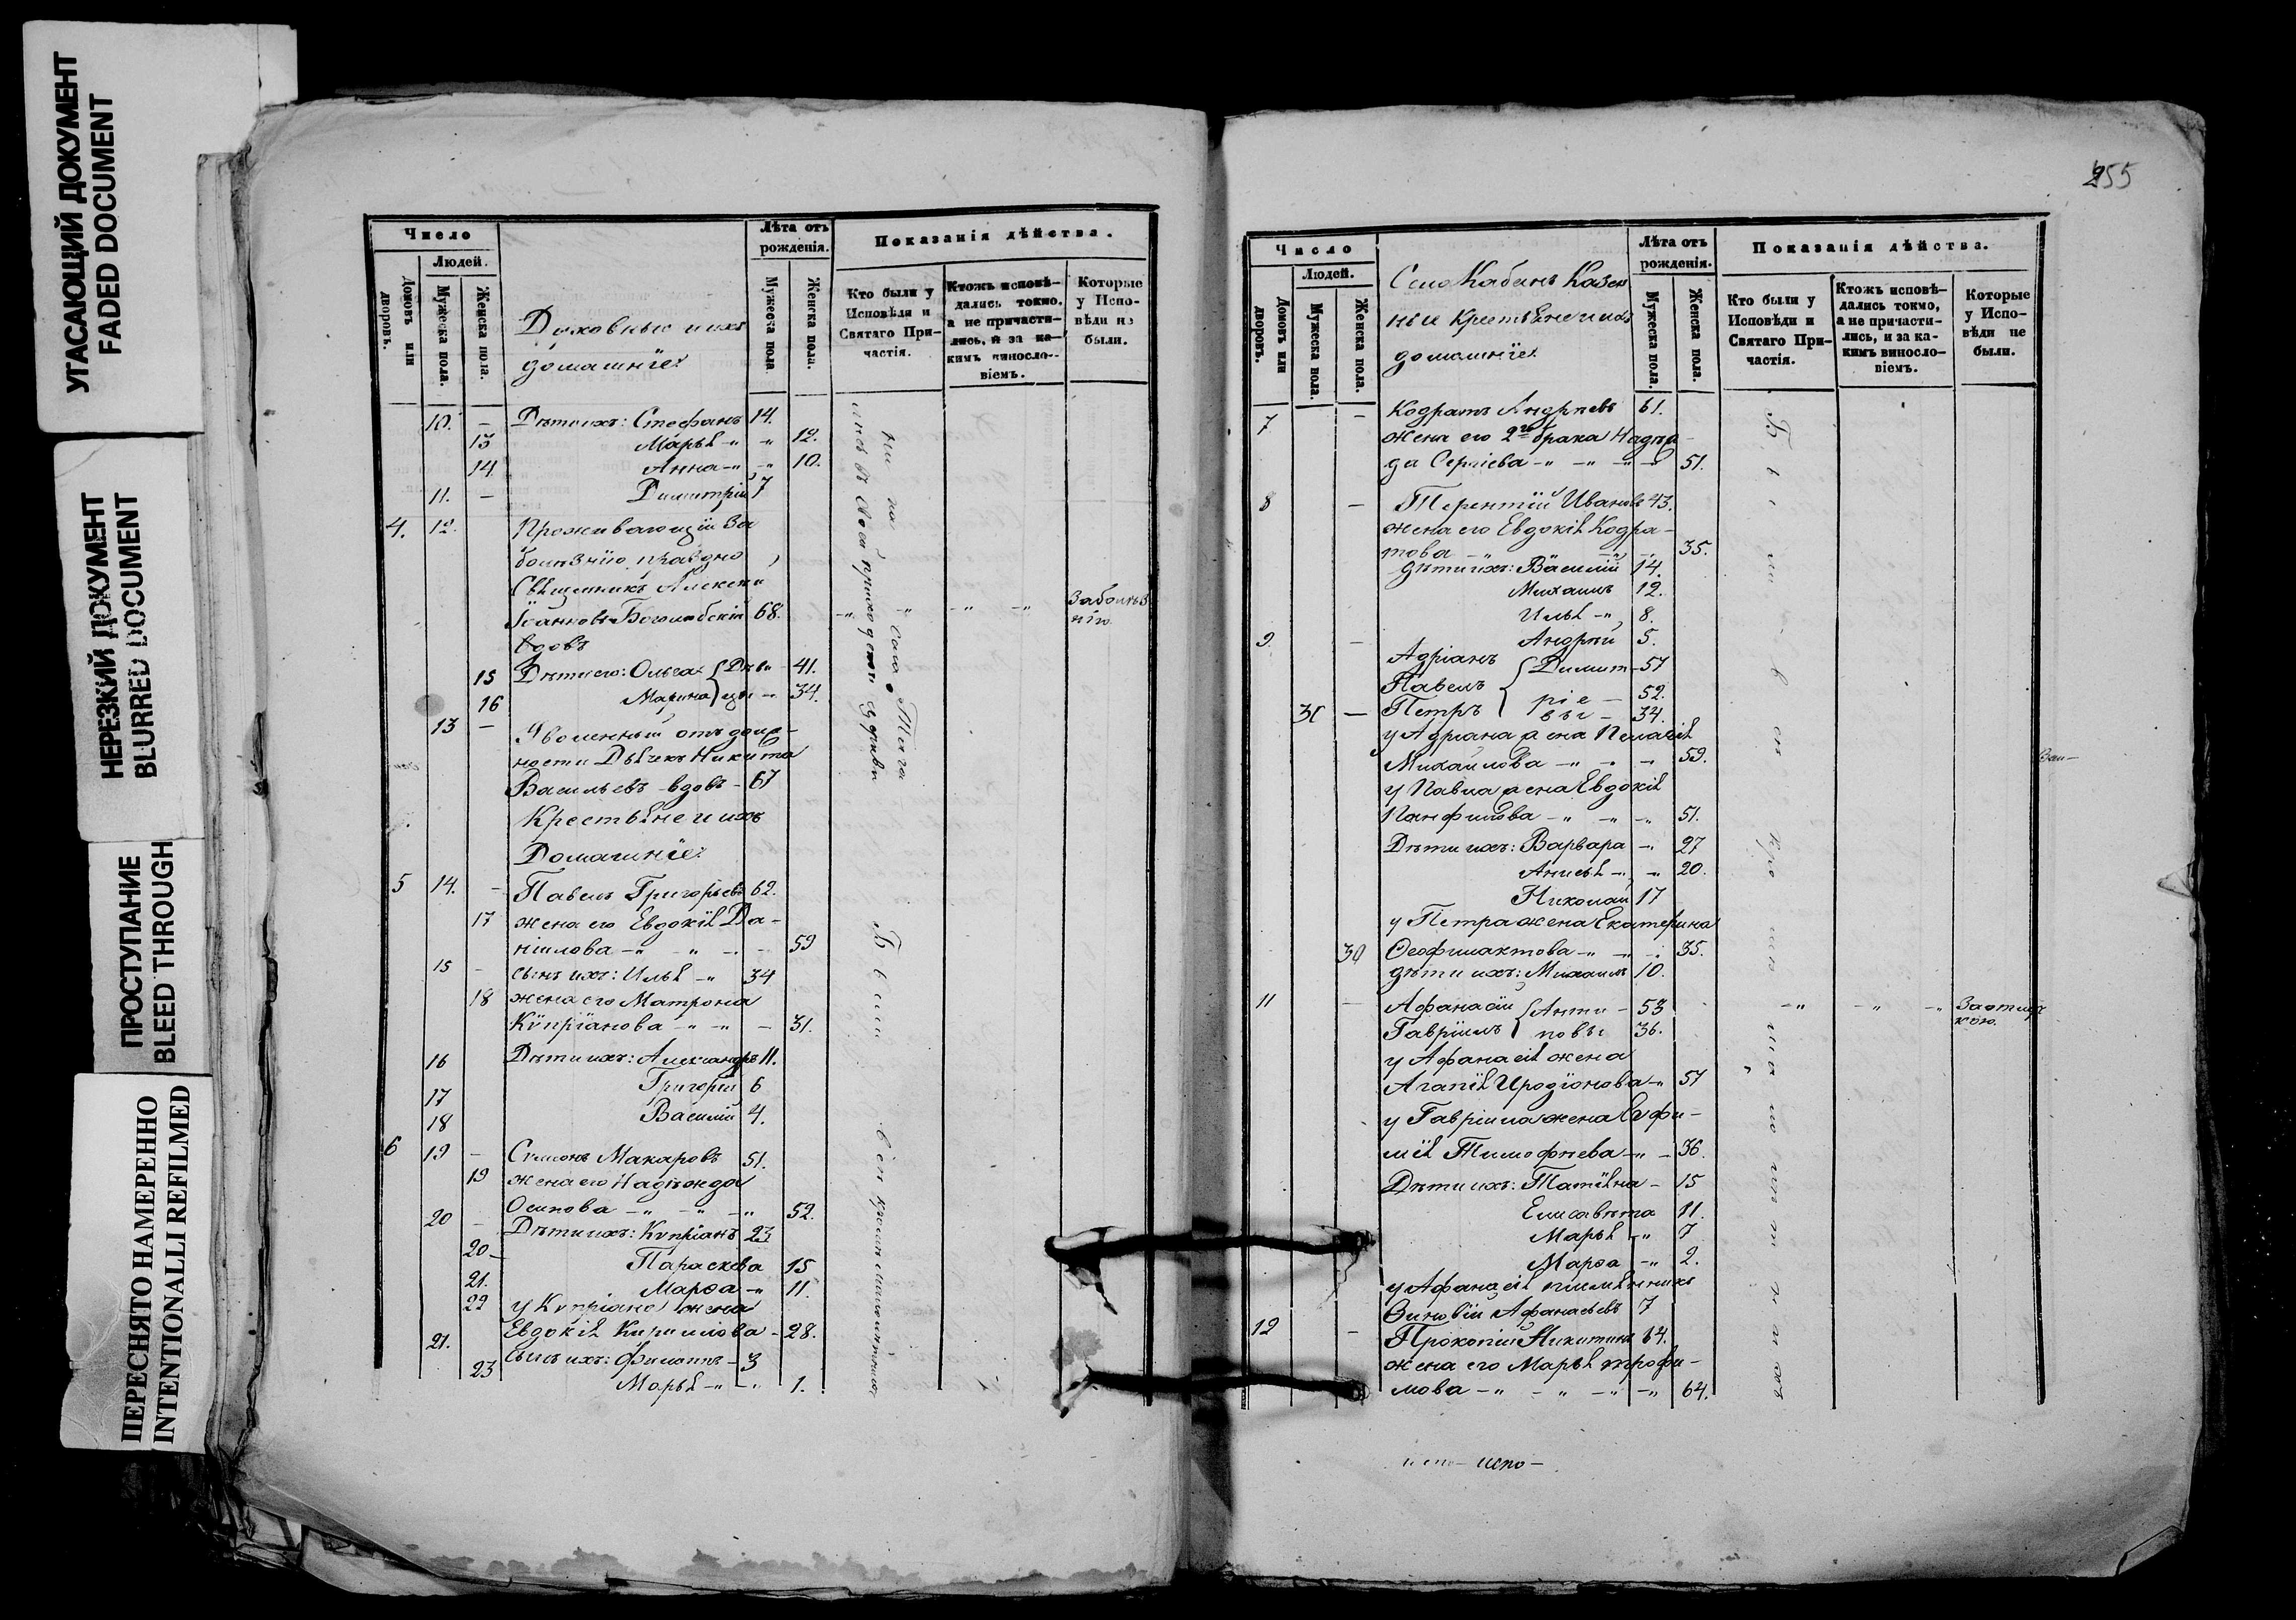 УГАСАЮЩИЙ ДОКУМЕНТ
FADED DOCUMENT
НЕРЕЗКИЙ ДОКУМЕНТ
BLURRED DOCUMENT
ПРОСТУПАНИЕ
BLEED THROUGH
ПЕРЕСНЯТО НАМЕРЕННО
INTENTIONALLI REFILMED
Число
Людей.
Домовъ или дворовъ.
Мужеска пола.
Женска пола.
Духовные и ихъ
домашніе:
Лѣта отъ рожденія.
Мужеска пола
Женска пола.
Показанія дѣйства.
Кто были у Исповѣди и Святаго Причастія.
Ктожъ исповѣдались токмо, а не причастились, и за какимъ винословіемъ.
Которые у Исповѣди не были.
10. — Дѣти ихъ: Стефанъ 14.
13 Марья -„ „ 12.
14. Анна -„ -„ 10.
11. — Димитрій 7
4. 12. Проживающій за
болѣзнію праздно
Священникъ Алексѣй
Іоанновъ Боголюбскій 68. -„ „ -„ -„ За болѣз
нію
вдовъ
15 Дѣти его: Ольга { Дѣви - 41.
16 Марина } цы -„ 34.
13 — Уволенный отъ долж-
ности Дьячекъ Никита
Васильевъ вдовъ - 67
Крестьяне и ихъ
Домашніе:
5 14. - Павелъ Григорьевъ 62.
17 жена его Евдокія Да-
нилова -„ „ -„ - 59
15 - сынъ ихъ: Илья -„ 34
18 жена его Матрона
Кѵпріанова -„ -„ - 31.
16 Дѣти ихъ: Александръ 11.
17 Григорій 6
18 Василій 4.
6 19 - Сѵмеонъ Макаровъ 51.
19 жена его Надѣжда
Осипова -„ -„ -„ 52.
20 - Дѣти ихъ: Кѵпріанъ 23
20 - Параскева 15
21. Марѳа -„ 11.
22 у Кѵпріана жена
Евдокія Кирилова - 28.
21. сынъ ихъ: Филиппъ - 3
23 Марья -„ -„ 1.
255
Число
Людей.
Домовъ или дворовъ.
Мужеска пола.
Женска пола.
Село Кабанъ Казен
ные Крестьяне и ихъ
домашніе:
Лѣта отъ рожденія.
Мужеска пола.
Женска пола.
Показанія дѣйства.
Кто были у Исповѣди и Святаго Причастія.
Ктожъ исповѣдались токмо, а не причастились, и за какимъ винословіемъ.
Которые у Исповѣди не были.
7 — Кодратъ Андреевъ 61.
жена его 2го брака Надеж
да Сергіева -„ -„ -„ -„ 51.
8 — Терентій Ивановъ 43.
жена его Евдокія Кодра-
това -„ -„ -„ 35.
дѣти ихъ: Василій 14.
Михаилъ 12.
Илья -„ 8.
9 — Андрей 5.
Адріанъ { Димит - 57
Павелъ ріе - 52.
— Петръ вы - 34.
у Адріана жена Пелагія
Михайлова -„ -„ -„ 59.
у Павла жена Евдокія
Панфилова -„ -„ -„ 51.
Дѣти ихъ: Варвара -„ 27
Анисья -„ -„ 20.
Николай 17
у Петра жена Екатерина
30 Ѳеофилактова -„ -„ -„ 35.
дѣти ихъ: Михаилъ 10.
11 — Афанасій { Анти - 53 -„ -„ -„ За отлуч
кою.
Гавріилъ { повы 36.
у Афанасія жена
Агапія Иродіонова -„ 57
у Гавріила жена Евфи-
мія Тимофеева -„ - 36.
Дѣти ихъ: Татіяна - 15
Елисавета 11.
Марья -„ 7
Марѳа -„ 2.
у Афанасія племянникъ
Зиновій Афанасьевъ 7
12 — Прокопій Никитинъ 64.
жена его Марья Трофи-
мова -„ -„ -„ -„ 64.
испо-